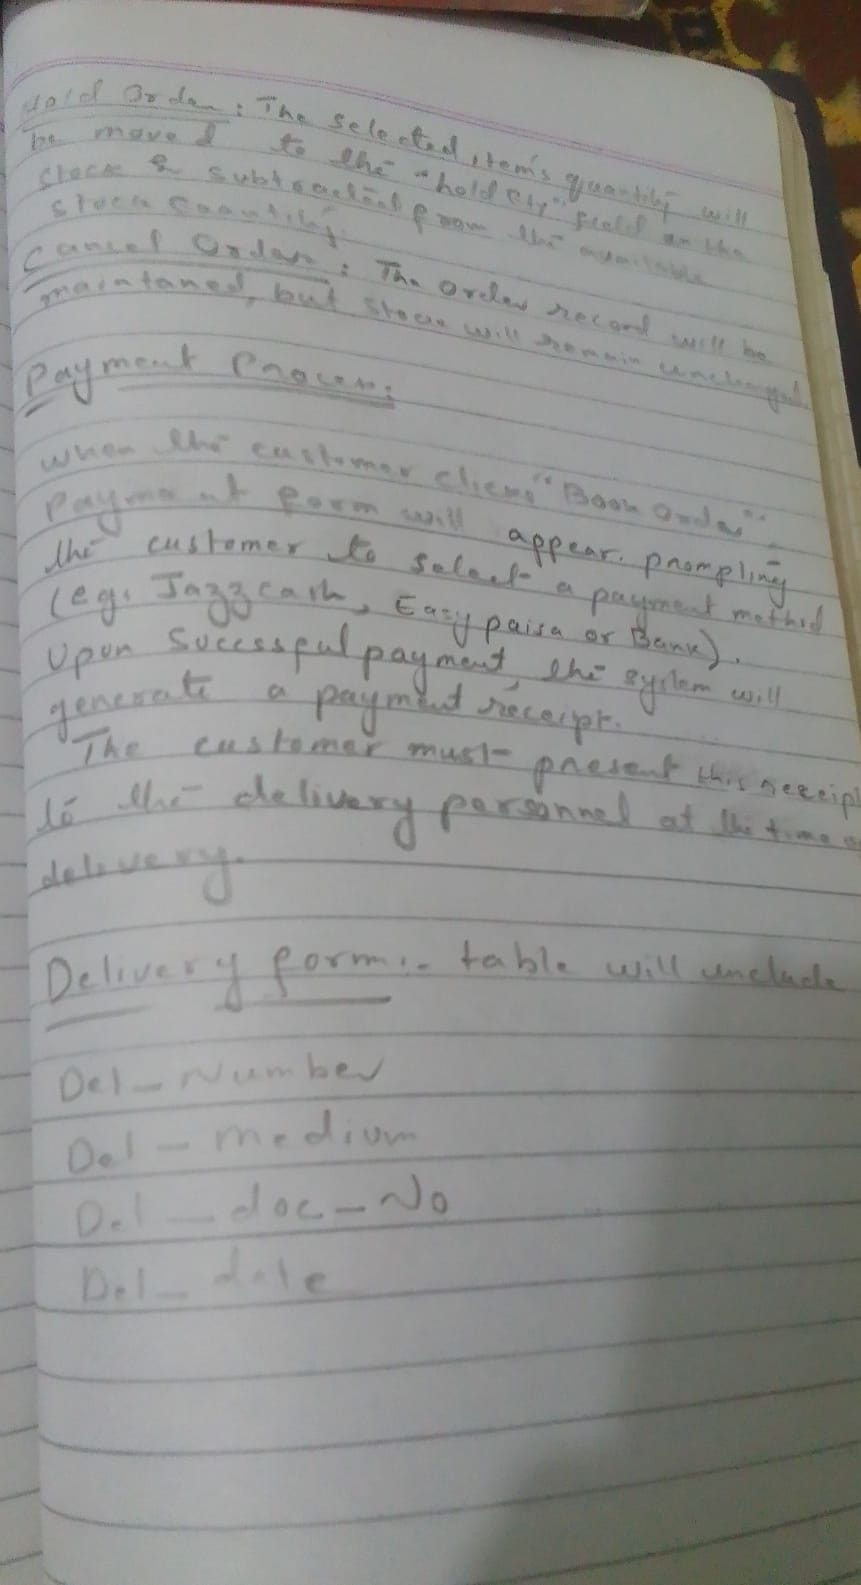 Hold Order : The selected item's quantity will
be moved to the "hold Qty" field in the
stock & subtracted from the available
stock quantity.
Cancel Order : The order record will be
maintaned, but stock will remain unchanged.
Payment Process :
When the customer clicks "Book Order".
Payment form will appear. prompting
the customer to select a payment method
(e.g. Jazzcash, Easypaisa or Bank).
Upon Successful payment, the system will
generate a payment receipt.
The customer must present this receipt
to the delivery personnel at the time o
delivery.
Delivery form :- table will include
Del_Number
Del_medium
Del_doc_No
Del_date